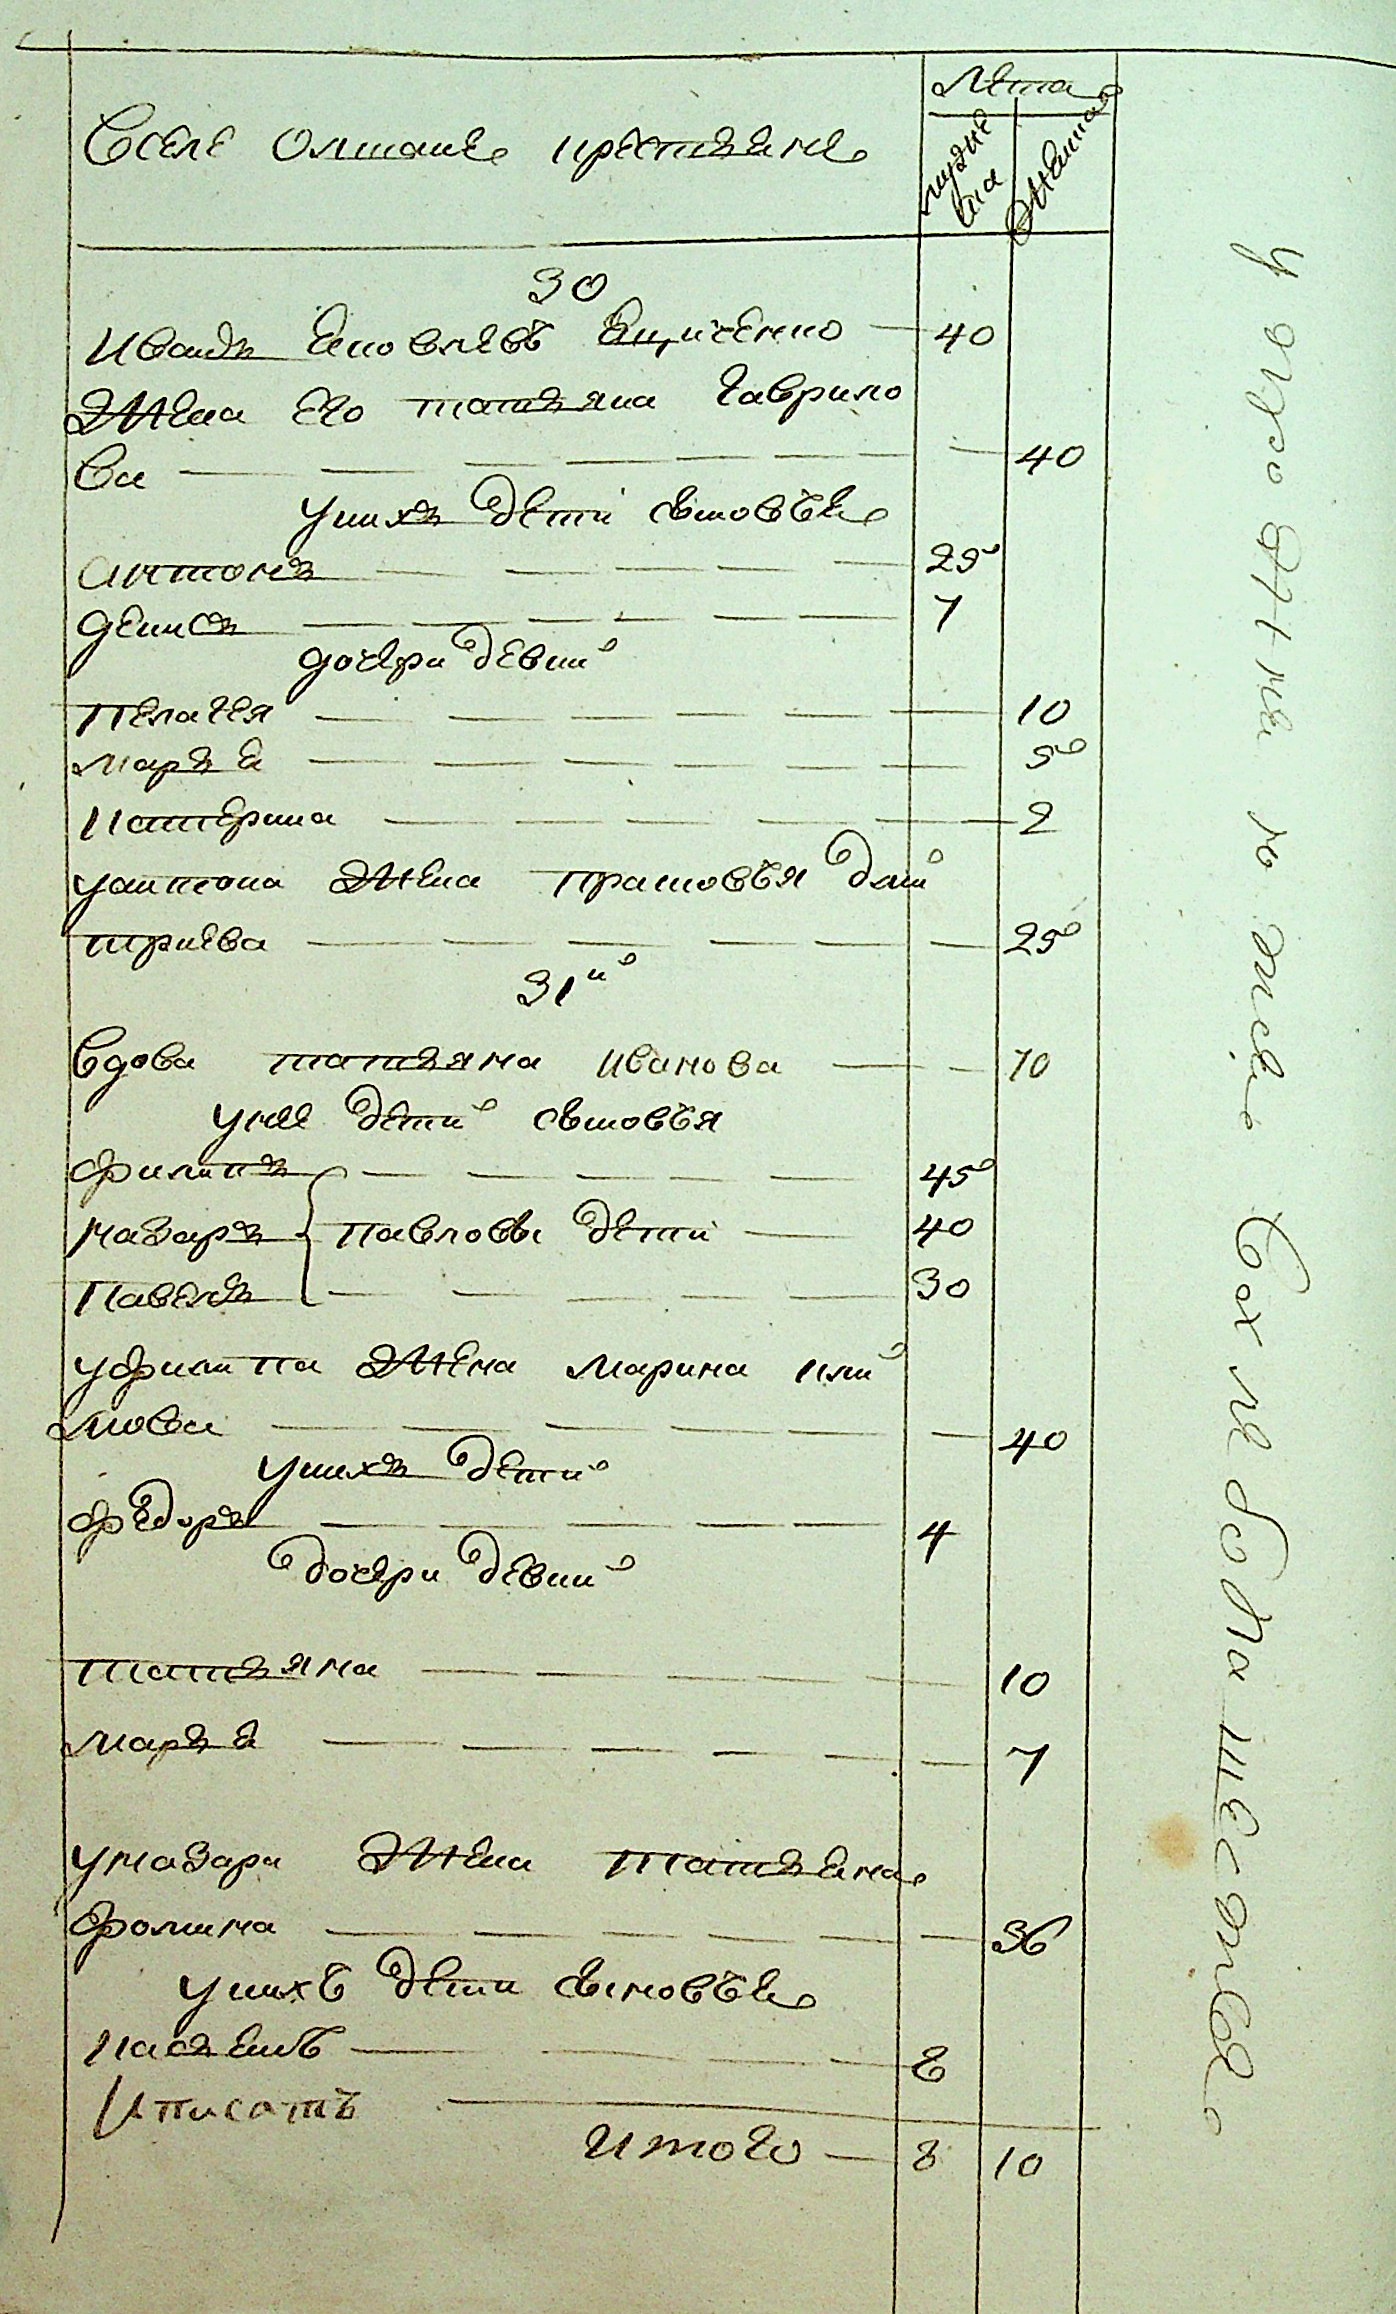 Лета
Вселе Олшане крестьяне
мужие
ска
женска
30
Иванъ Яковлевъ Ященко 40
Жена его татьяна Гаврило
ва 40
унихъ дети сыновъя
антонъ 25
денисъ 7
дочери девки
пелагея 10
маръя 5
Катерина 2
уантона жена прасковъя дми
триева 25
31й
вдова татьяна иванова 70
унее дети сыновъя
филипъ 45
назаръ павловы дети 40
павелъ 30
уфилипа жена марина кли
мова 40
унихъ дети
федоръ 4
дочери девки
татьяна 10
маръя 7
уназара жена татьяна
фомина 36
унихъ дети сыновъя
касянъ 8
Кписатъ
итого 8 10